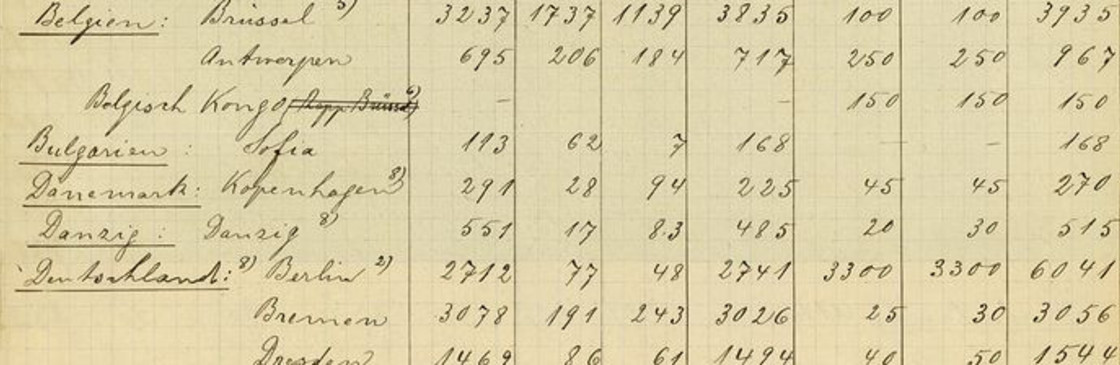 Belgien: Brüssel 5) 3237 1737 1139 3835 100 100 3935
Antwerpen 695 206 184 717 250 250 967
Belgisch Kongo 6) – – 150 150 150
Bulgarien: Sofia 113 62 7 168 – – 168
Dänemark: Kopenhagen 8) 291 28 94 225 45 45 270
Danzig: Danzig 8) 551 17 83 485 20 30 515
Deutschland: 8) Berlin 2) 2712 77 48 2741 3300 3300 6041
Bremen 3078 191 243 3026 25 30 3056
Dresden 1469 86 61 1494 40 50 1544